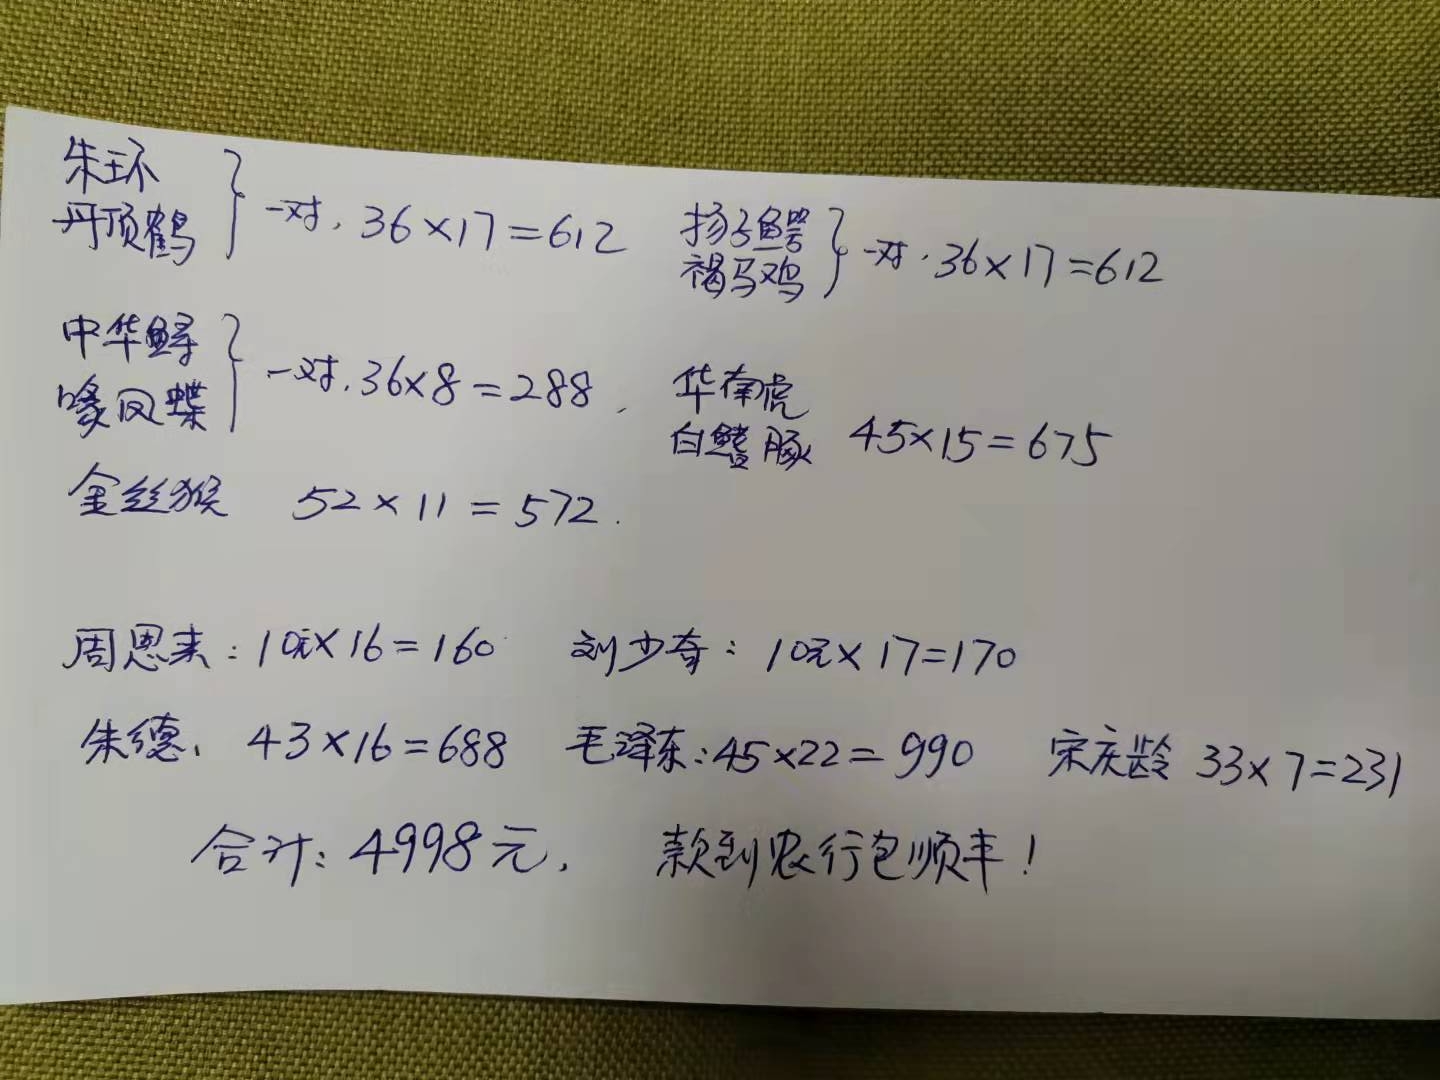 朱环
丹顶鹤
一对，36×17=612
扬子鳄
褐马鸡
一对，36×17=612
中华鲟
喙凤蝶
一对，36×8=288，
华南虎
白鳍豚 45×15=675
金丝猴 52×11=572.
周恩来：10元×16=160 刘少奇：10元×17=170
朱德、43×16=688 毛泽东：45×22=990 宋庆龄 33×7=231
合计：4998元， 款到农行包顺丰！